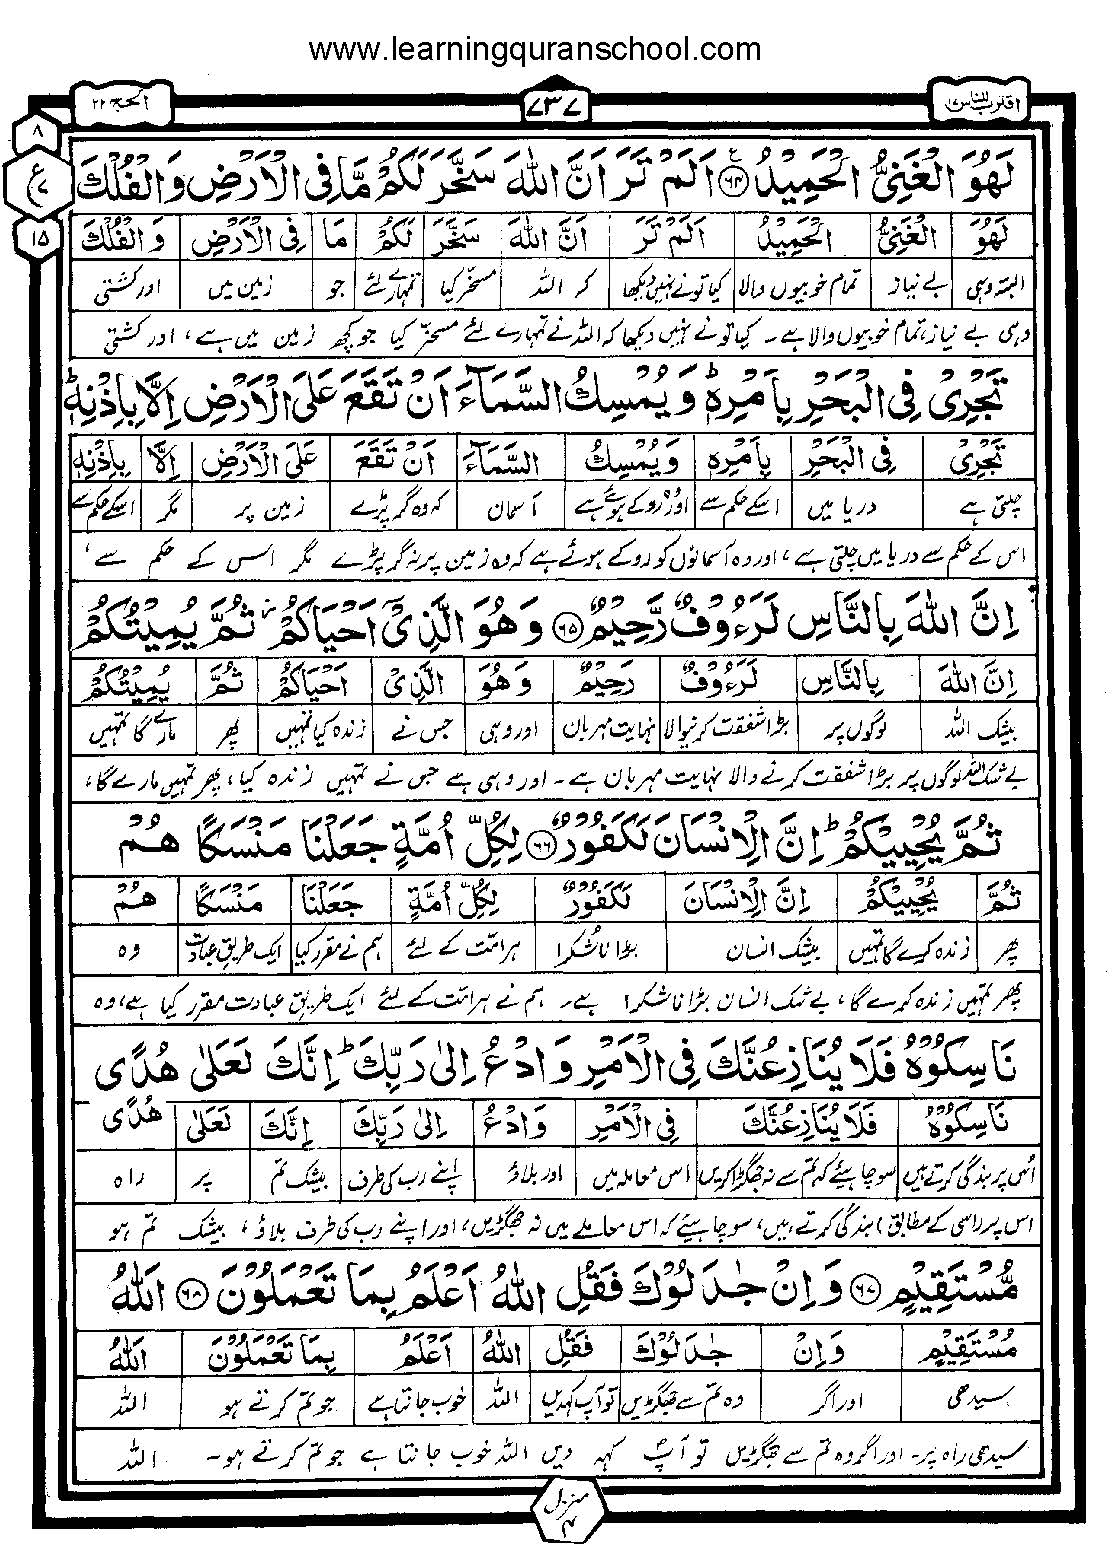 www.learningquranschool.com
اقترب للناس ۱۷
۷۳۷
الحج ۲۲
۸
ع
۷
۱۵
لَهُوَ الْغَنِيُّ الْحَمِيْدُ ۶۴ اَلَمْ تَرَ اَنَّ اللّٰهَ سَخَّرَ لَكُمْ مَّا فِى الْاَرْضِ وَالْفُلْكَ
لَهُوَ الْغَنِيُّ الْحَمِيْدُ اَلَمْ تَرَ اَنَّ اللّٰهَ سَخَّرَ لَكُمْ مَا فِى الْاَرْضِ وَ الْفُلْكَ
البتہ وہی بے نیاز تمام خوبیوں والا کیا تونے نہیں دیکھا کہ اللہ مسخر کیا تمہارے لئے جو زمین میں اور کشتی
وہی بے نیاز، تمام خوبیوں والا ہے۔ کیا تو نے نہیں دیکھا کہ اللہ نے تمہارے لئے مسخر کیا جو کچھ زمین میں ہے، اور کشتی
تَجْرِىْ فِى الْبَحْرِ بِاَمْرِهٖ ؕ وَ يُمْسِكُ السَّمَآءَ اَنْ تَقَعَ عَلَى الْاَرْضِ اِلَّا بِاِذْنِهٖ ؕ
تَجْرِىْ فِى الْبَحْرِ بِاَمْرِهٖ وَ يُمْسِكُ السَّمَآءَ اَنْ تَقَعَ عَلَى الْاَرْضِ اِلَّا بِاِذْنِهٖ
چلتی ہے دریا میں اسکے حکم سے اور روکے ہوئے ہے آسمان کہ وہ گر پڑے زمین پر مگر اسکے حکم سے
اس کے حکم سے دریا میں چلتی ہے، اور وہ آسمانوں کو روکے ہوئے ہے کہ وہ زمین پر نہ گر پڑے مگر اس کے حکم سے،
اِنَّ اللّٰهَ بِالنَّاسِ لَرَءُوْفٌ رَّحِيْمٌ ۶۵ وَ هُوَ الَّذِىْۤ اَحْيَاكُمْ ؗ ثُمَّ يُمِيْتُكُمْ
اِنَّ اللّٰهَ بِالنَّاسِ لَرَءُوْفٌ رَحِيْمٌ وَ هُوَ الَّذِىْ اَحْيَاكُمْ ثُمَّ يُمِيْتُكُمْ
بیشک اللہ لوگوں پر بڑا شفقت کرنیوالا نہایت مہربان اور وہی جس نے زندہ کیا تمہیں پھر مارے گا تمہیں
بے شک اللہ لوگوں پر بڑا شفقت کرنے والا نہایت مہربان ہے۔ اور وہی ہے جس نے تمہیں زندہ کیا، پھر تمہیں مارے گا،
ثُمَّ يُحْيِيْكُمْ ؕ اِنَّ الْاِنْسَانَ لَكَفُوْرٌ ۶۶ لِكُلِّ اُمَّةٍ جَعَلْنَا مَنْسَكًا هُمْ
ثُمَّ يُحْيِيْكُمْ اِنَّ الْاِنْسَانَ لَكَفُوْرٌ لِكُلِّ اُمَّةٍ جَعَلْنَا مَنْسَكًا هُمْ
پھر زندہ کرے گا تمہیں بیشک انسان بڑا ناشکرا ہر امت کے لئے ہم نے مقرر کیا ایک طریق عبادت وہ
پھر تمہیں زندہ کرے گا، بے شک انسان بڑا ناشکرا ہے۔ ہم نے ہر امت کے لئے ایک طریق عبادت مقرر کیا ہے، وہ
نَاسِكُوْهُ فَلَا يُنَازِعُنَّكَ فِى الْاَمْرِ وَ ادْعُ اِلٰى رَبِّكَ ؕ اِنَّكَ لَعَلٰى هُدًى
نَاسِكُوْهُ فَلَا يُنَازِعُنَّكَ فِى الْاَمْرِ وَ ادْعُ اِلٰى رَبِّكَ اِنَّكَ لَعَلٰى هُدًى
اس پر بندگی کرتے ہیں سو چاہیئے کہ تم سے نہ جھگڑا کریں اس معاملہ میں اور بلاؤ اپنے رب کی طرف بیشک تم پر راہ
اس پر (اسی کے مطابق) بندگی کرتے ہیں، سو چاہیئے کہ اس معاملے میں نہ جھگڑیں، اور اپنے رب کی طرف بلاؤ، بیشک تم ہو
مُّسْتَقِيْمٍ ۶۷ وَ اِنْ جٰدَلُوْكَ فَقُلِ اللّٰهُ اَعْلَمُ بِمَا تَعْمَلُوْنَ ۶۸ اَللّٰهُ
مُسْتَقِيْمٍ وَ اِنْ جٰدَلُوْكَ فَقُلِ اللّٰهُ اَعْلَمُ بِمَا تَعْمَلُوْنَ اَللّٰهُ
سیدھی اور اگر وہ تم سے جھگڑیں تو آپ کہدیں اللہ خوب جانتا ہے جو تم کرتے ہو اللہ
سیدھی راہ پر۔ اور اگر وہ تم سے جھگڑیں تو آپ کہہ دیں اللہ خوب جانتا ہے جو تم کرتے ہو۔ اللہ
منزل
۴